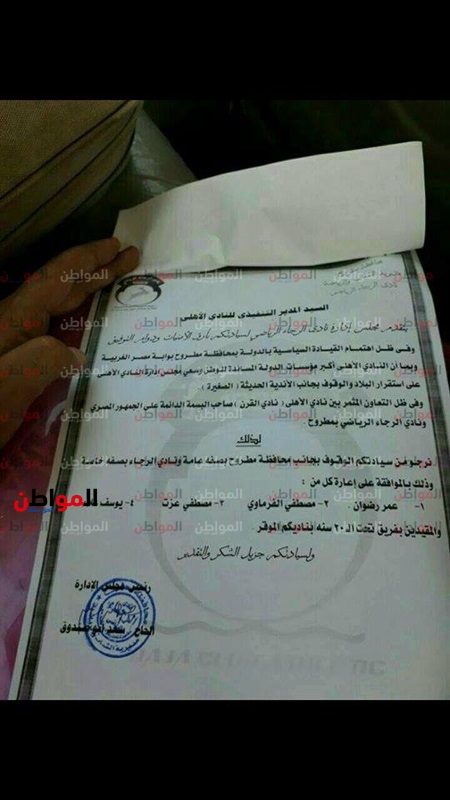 السيد المدير التنفيذى للنادى الأهلى
يتقدم مجلس إدارة نادى الرجاء الرياضي لسيادتكم بأرق الأمنيات ودوام التوفيق
وفى ظل اهتمام القيادة السياسية بالدولة بمحافظة مطروح بوابة مصر الغربية
وبما أن النادي الأهلى أكبر مؤسسات الدولة المساندة للوطن وسعي مجلس إدارة النادي الأهلى
على استقرار البلاد والوقوف بجانب الأندية الحديثة ( الصغيرة )
وفى ظل التعاون المثمر بين نادي الأهلى ( نادي القرن ) صاحب البسمة الدائمة على الجمهور المصري
ونادي الرجاء الرياضي بمطروح.
لذلك
نرجو من سيادتكم الوقوف بجانب محافظة مطروح بصفه عامة ونادي الرجاء بصفه خاصة
وذلك بالموافقة على إعارة كل من :
١- عمر رضوان ٢- مصطفي الفرماوي ٣- مصطفي عزت ٤- يوسف
والمقيدين بفريق تحت ال ٢٠ سنه بناديكم الموقر.
ولسيادتكم جزيل الشكر والتقدير
رئيس مجلس الإدارة
الحاج
المواطن